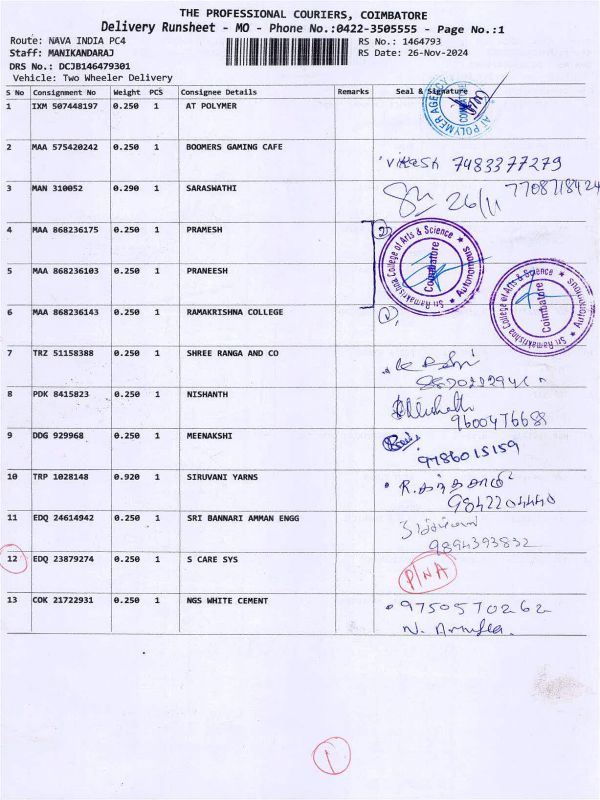 THE PROFESSIONAL COURIERS, COIMBATORE
Delivery Runsheet - MO - Phone No.:0422-3505555 - Page No.:1
Route: NAVA INDIA PC4
RS No.: 1464793
Staff: MANIKANDARAJ
RS Date: 26-Nov-2024
DRS No.: DCJB146479301
Vehicle: Two Wheeler Delivery
S No Consignment No Weight PCS Consignee Details Remarks Seal & Signature
1 IXM 507448197 0.250 1 AT POLYMER
AT POLYMER AGENCY
2 MAA 575420242 0.250 1 BOOMERS GAMING CAFE
7483377279
3 MAN 310052 0.290 1 SARASWATHI
26/11 7708718424
4 MAA 868236175 0.250 1 PRAMESH
Sri Ramakrishna College of Arts & Science ★ Autonomous ★
Coimbatore
5 MAA 868236103 0.250 1 PRANEESH
Sri Ramakrishna College of Arts & Science ★ Autonomous ★
Coimbatore
6 MAA 868236143 0.250 1 RAMAKRISHNA COLLEGE
7 TRZ 51158388 0.250 1 SHREE RANGA AND CO
8 PDK 8415823 0.250 1 NISHANTH
9 DDG 929968 0.250 1 MEENAKSHI
9786015159
10 TRP 1028148 0.920 1 SIRUVANI YARNS
9842204440
11 EDQ 24614942 0.250 1 SRI BANNARI AMMAN ENGG
9894393832
12 EDQ 23879274 0.250 1 S CARE SYS
P/NA
13 COK 21722931 0.250 1 NGS WHITE CEMENT
9750570262
1